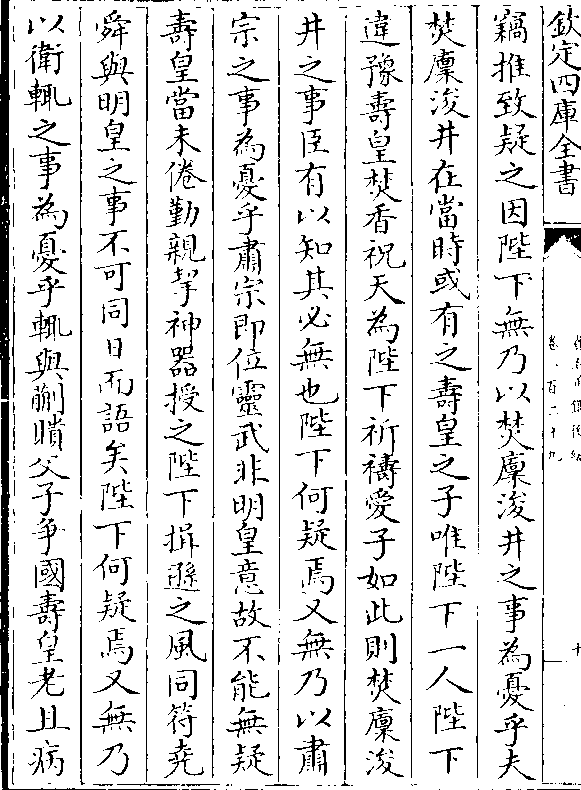 欽定四庫全書
卷一百二十九
竊推致疑之因陛下無乃以焚廩浚井之事為憂乎夫
焚廩浚井在當時或有之壽皇之子唯陛下一人陛下
違豫壽皇焚香祝天為陛下祈禱愛子如此則焚廩浚
井之事臣有以知其必無也陛下何疑焉又無乃以肅
宗之事為憂乎肅宗即位靈武非明皇意故不能無疑
壽皇當未倦勤親挈神器授之陛下揖遜之風同符堯
舜與明皇之事不可同日而語矣陛下何疑焉又無乃
以衛輒之事為憂乎輒與蒯聵父子爭國壽皇老且病